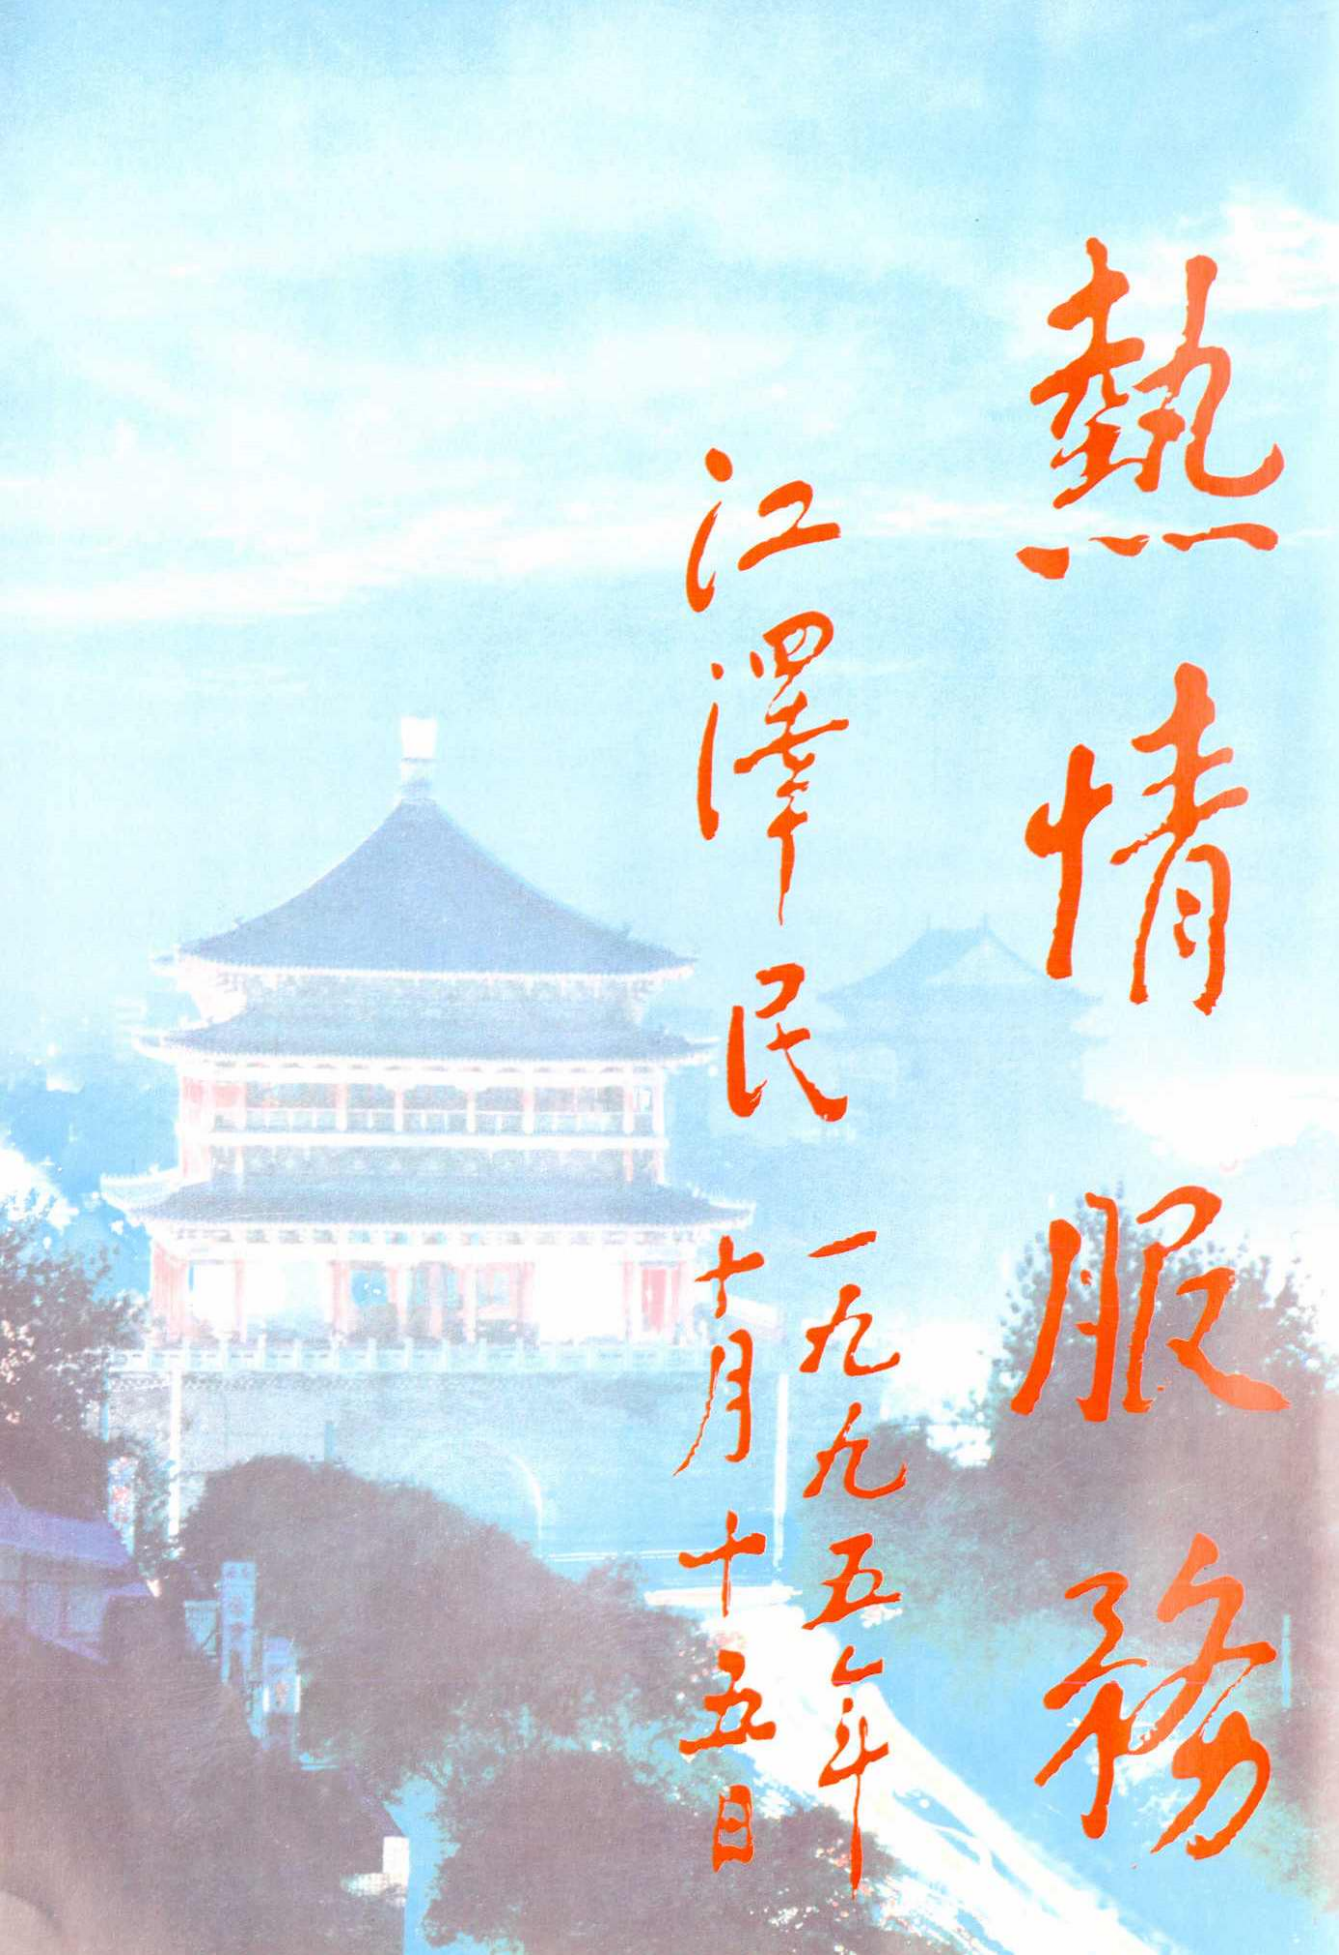 熱情服務
江澤民
一九九五年
十月十五日